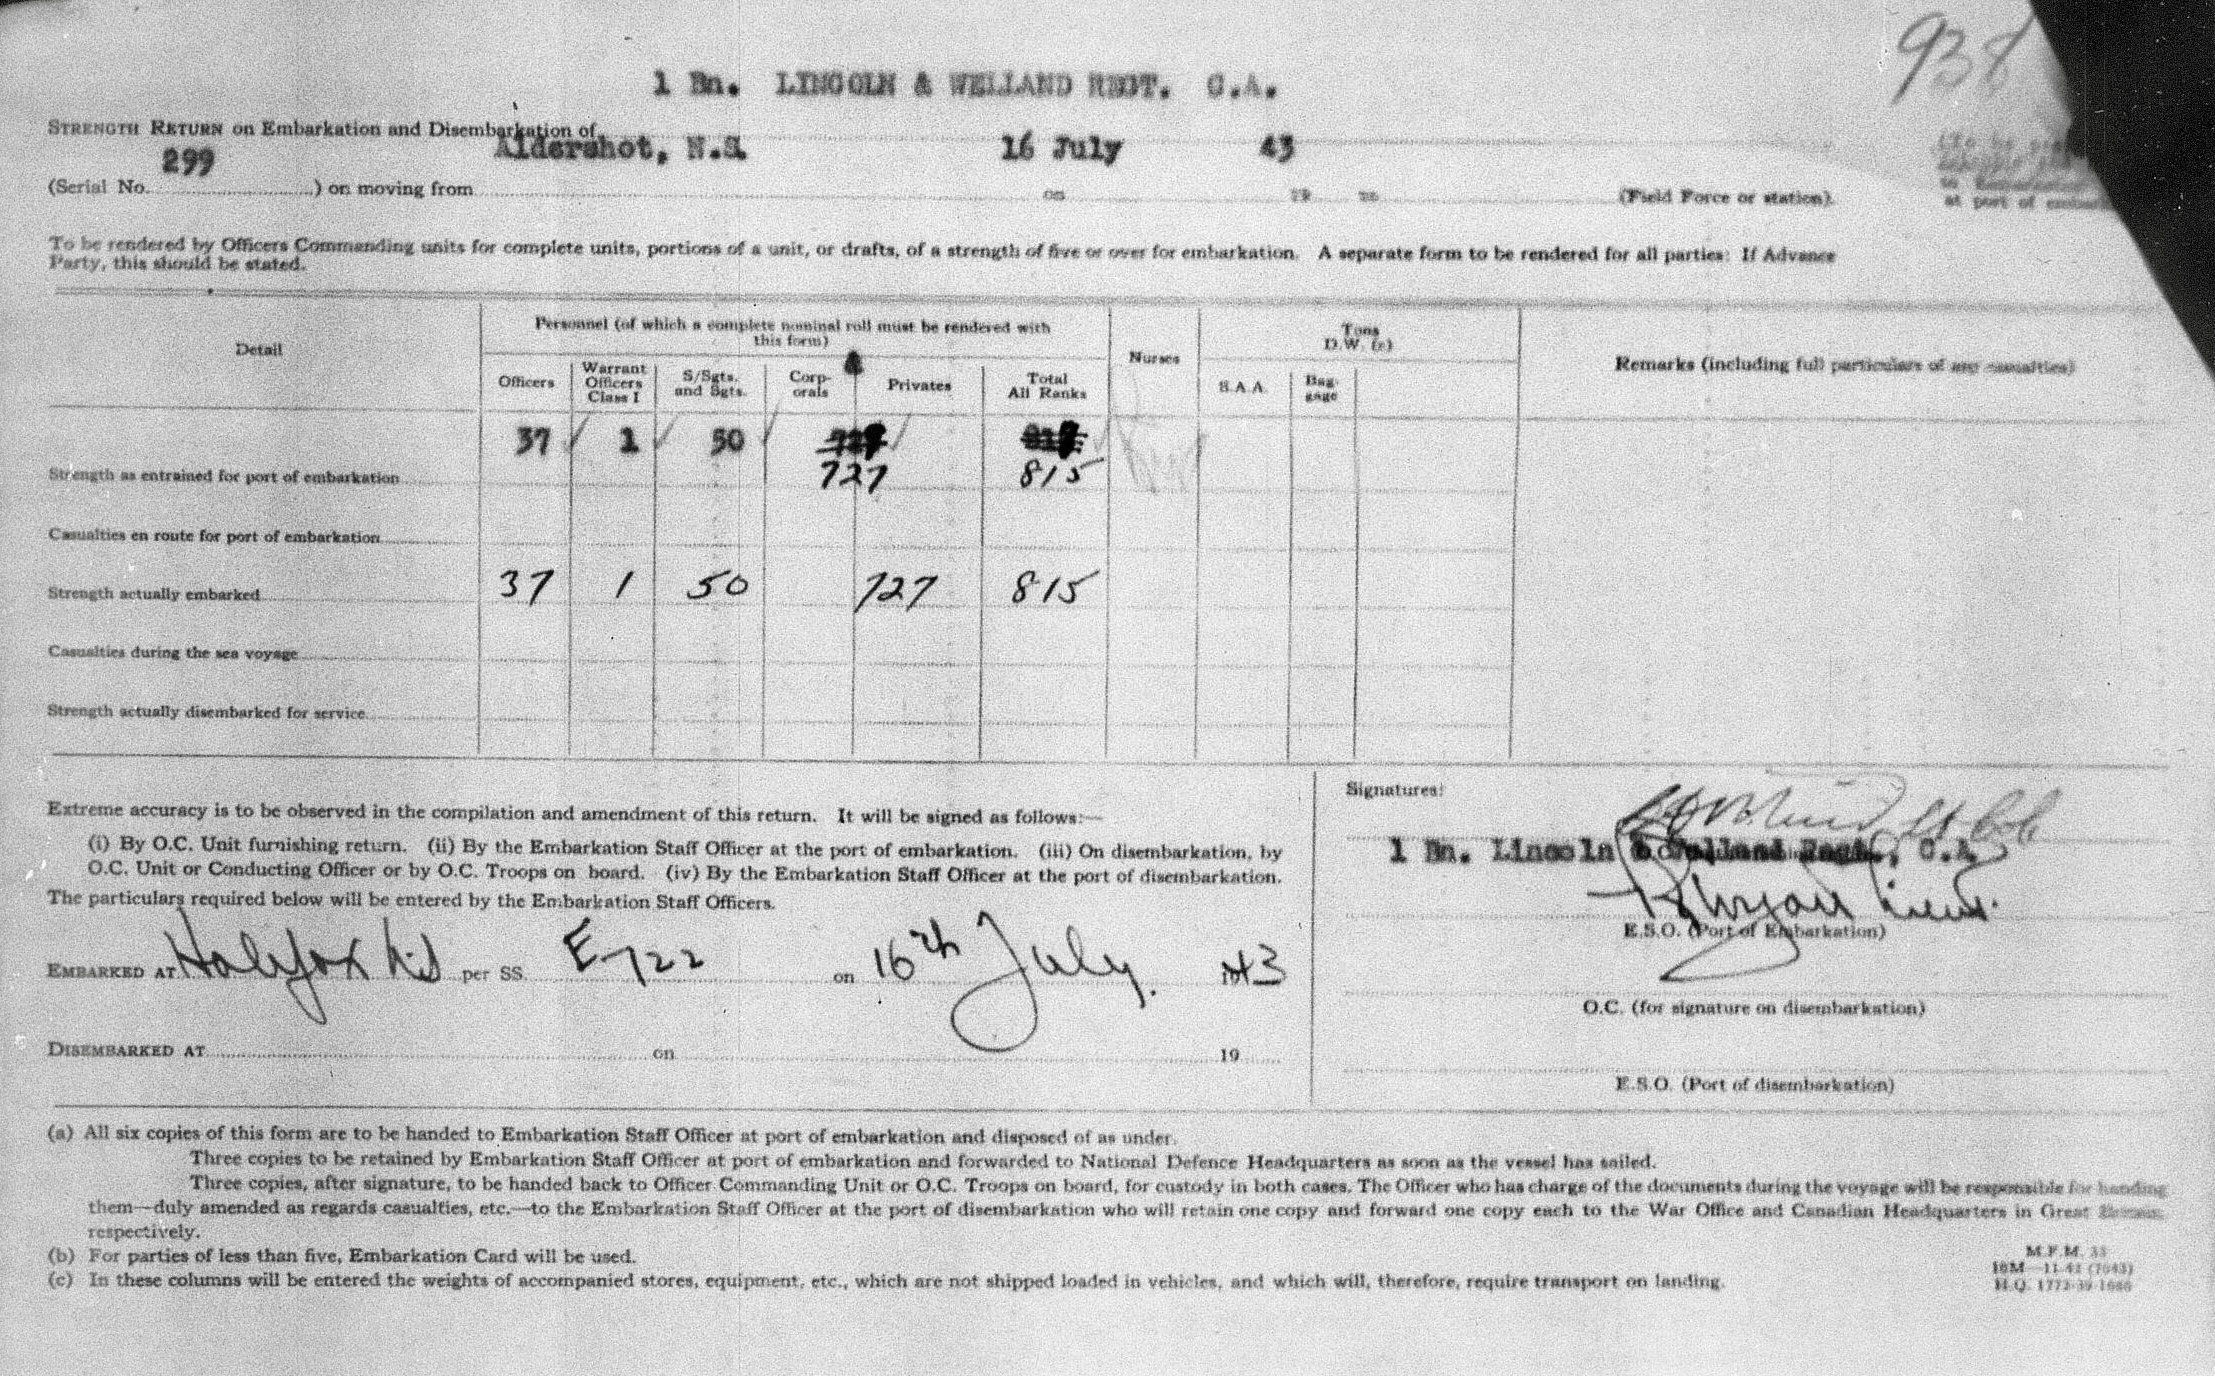 938
1 Bn. LINCOLN & WELLAND REGT. C.A.
STRENGTH RETURN on Embarkation and Disembarkation of
299 Aldershot, N.S. 16 July 43
(Serial No. ) on moving from on 19 to (Field Force or station).
at port of
To be rendered by Officers Commanding units for complete units, portions of a unit, or drafts, of a strength of five or over for embarkation. A separate form to be rendered for all parties: If Advance
Party, this should be stated.
Detail
Personnel (of which a complete nominal roll must be rendered with
this form)
Nurses
Tons
D.W. (c)
Remarks (including full particulars of any casualties)
Officers
Warrant
Officers
Class I
S/Sgts.
and Sgts.
Corp-
orals
Privates
Total
All Ranks
S.A.A.
Bag-
gage
37 1 50
Strength as entrained for port of embarkation 727 815
Casualties en route for port of embarkation
Strength actually embarked 37 1 50 727 815
Casualties during the sea voyage
Strength actually disembarked for service
Extreme accuracy is to be observed in the compilation and amendment of this return. It will be signed as follows:—
(i) By O.C. Unit furnishing return. (ii) By the Embarkation Staff Officer at the port of embarkation. (iii) On disembarkation, by
O.C. Unit or Conducting Officer or by O.C. Troops on board. (iv) By the Embarkation Staff Officer at the port of disembarkation.
The particulars required below will be entered by the Embarkation Staff Officers.
EMBARKED AT Halifax N.S per SS. E-722 on 16th July. 1943
DISEMBARKED AT on 19
Signatures:
Lt Col
1 Bn. Lincoln & Welland Regt., C.A.
Lieut.
E.S.O. (Port of Embarkation)
O.C. (for signature on disembarkation)
E.S.O. (Port of disembarkation)
(a) All six copies of this form are to be handed to Embarkation Staff Officer at port of embarkation and disposed of as under.
Three copies to be retained by Embarkation Staff Officer at port of embarkation and forwarded to National Defence Headquarters as soon as the vessel has sailed.
Three copies, after signature, to be handed back to Officer Commanding Unit or O.C. Troops on board, for custody in both cases. The Officer who has charge of the documents during the voyage will be responsible for handing
them—duly amended as regards casualties, etc.—to the Embarkation Staff Officer at the port of disembarkation who will retain one copy and forward one copy each to the War Office and Canadian Headquarters in Great Britain,
respectively.
(b) For parties of less than five, Embarkation Card will be used.
(c) In these columns will be entered the weights of accompanied stores, equipment, etc., which are not shipped loaded in vehicles, and which will, therefore, require transport on landing.
M.F.M. 33
H.Q. 1772-39-1686